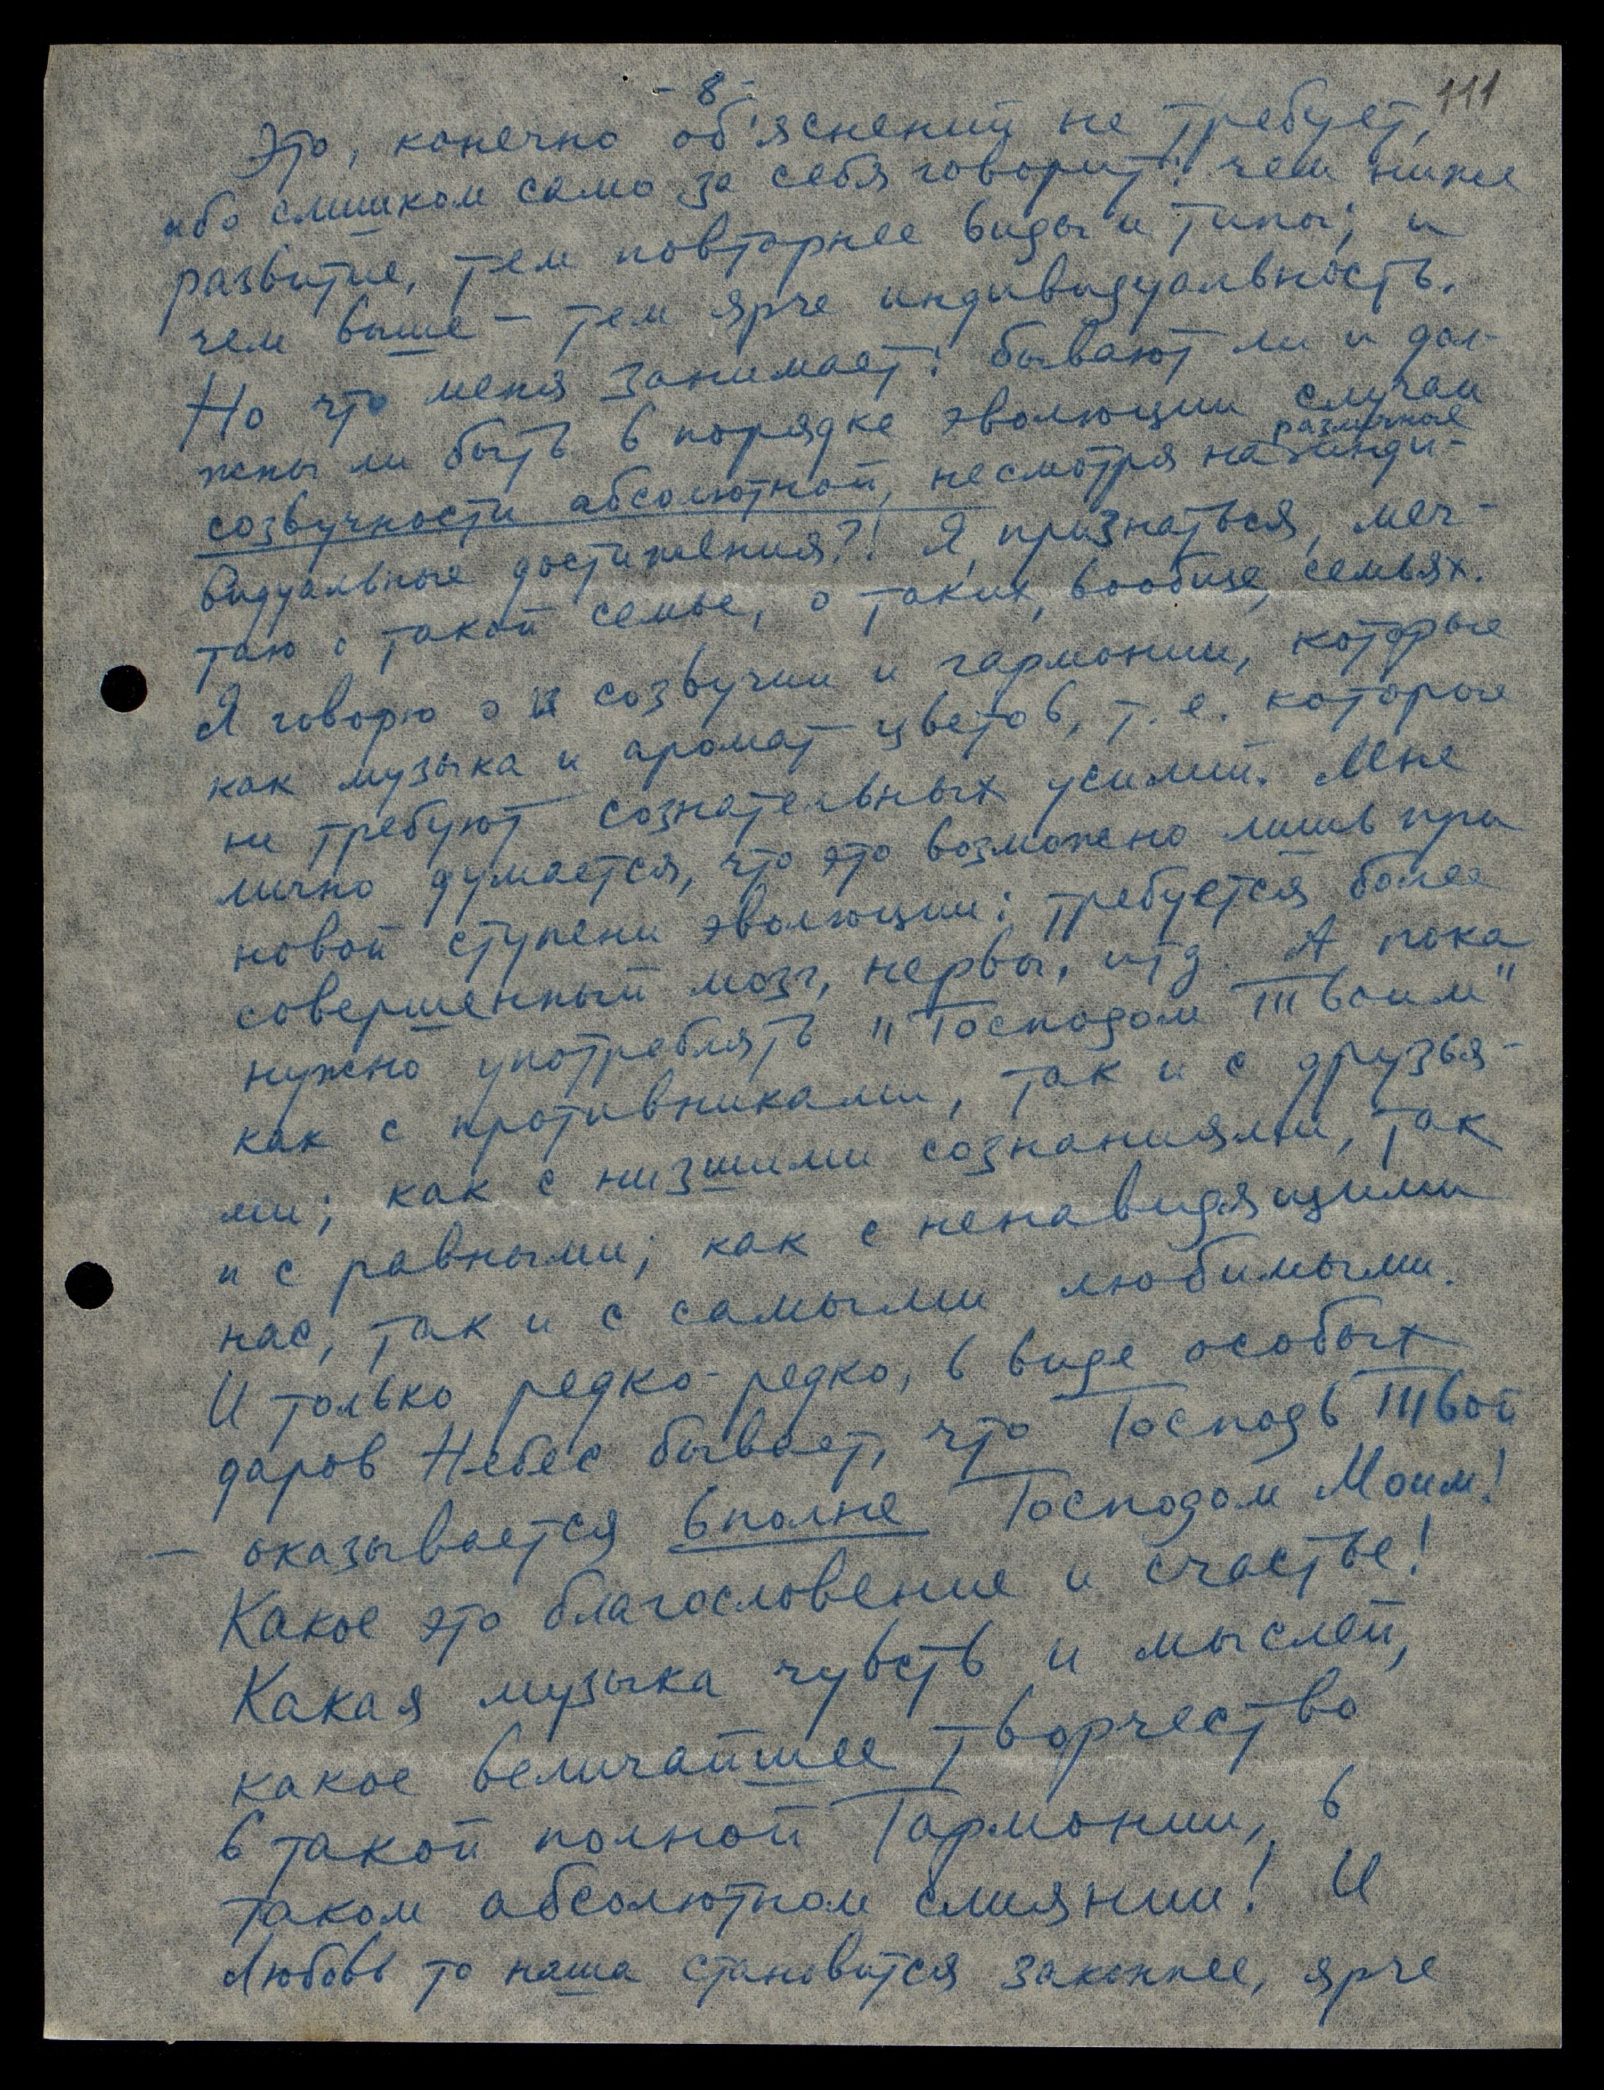 - 8 -
111
Это, конечно об'яснений не требует,
ибо слишком само за себя говорит: чем ниже
развитие, тем повторнее виды и типы; и
чем выше – тем ярче индивидуальность.
Но что меня занимает: бывают ли и дол-
жны ли быть в порядке эволюции случаи
различные
созвучности абсолютной, несмотря на инди-
видуальные достижения?! Я, признаться, меч-
таю о такой семье, о таких, вообще, семьях.
Я говорю о созвучии и гармонии, которые
как музыка и аромат цветов, т. е. которые
не требуют сознательных усилий. Мне
лично думается, что это возможно лишь при
новой ступени эволюции: требуется более
совершенный мозг, нервы, итд. А пока
нужно употреблять "Господом Твоим"
как с противниками, так и с друзья-
ми; как с низшими сознаниями, так
и с равными; как с ненавидящими
нас, так и с самыми любимыми.
И только редко-редко, в виде особых
даров Небес бывает, что Господь Твой
– оказывается вполне Господом Моим!
Какое это благословение и счастье!
Какая музыка чувств и мыслей,
какое величайшее творчество
в такой полной Гармонии, в
таком абсолютном слиянии! И
Любовь то наша становится законнее, ярче